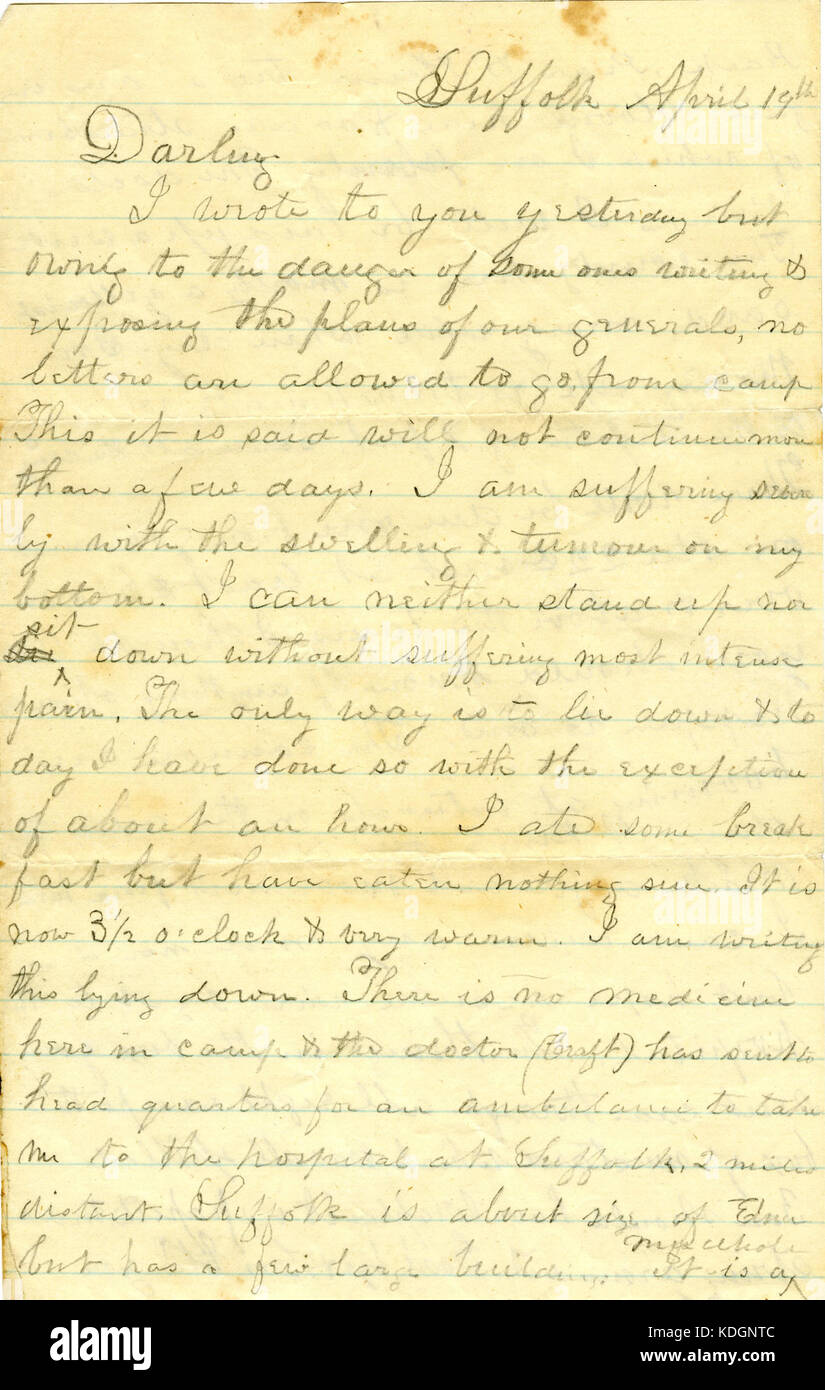 Suffolk April 19th
Darling
I wrote to you yesterday but
owing to the danger of some ones writing &
exposing the plans of our generals, no
letters are allowed to go from camp
This it is said will not continue more
than a few days. I am suffering severe
ly with the swelling & tumour on my
bottom. I can neither stand up nor
sit
down without suffering most intense
pain. The only way is to lie down & to
day I have done so with the exception
of about an hour. I ate some break
fast but have eaten nothing since. It is
now 3 1/2 o'clock & very warm. I am writing
this lying down. There is no medicine
here in camp & the doctor (Craft) has sent to
head quarters for an ambulance to take
me to the hospital at Suffolk, 2 miles
distant. Suffolk is about size of Edna
but has a few large buildings. It is a
alamy
a
alamy stock photo
KDGNTC
www.alamy.com